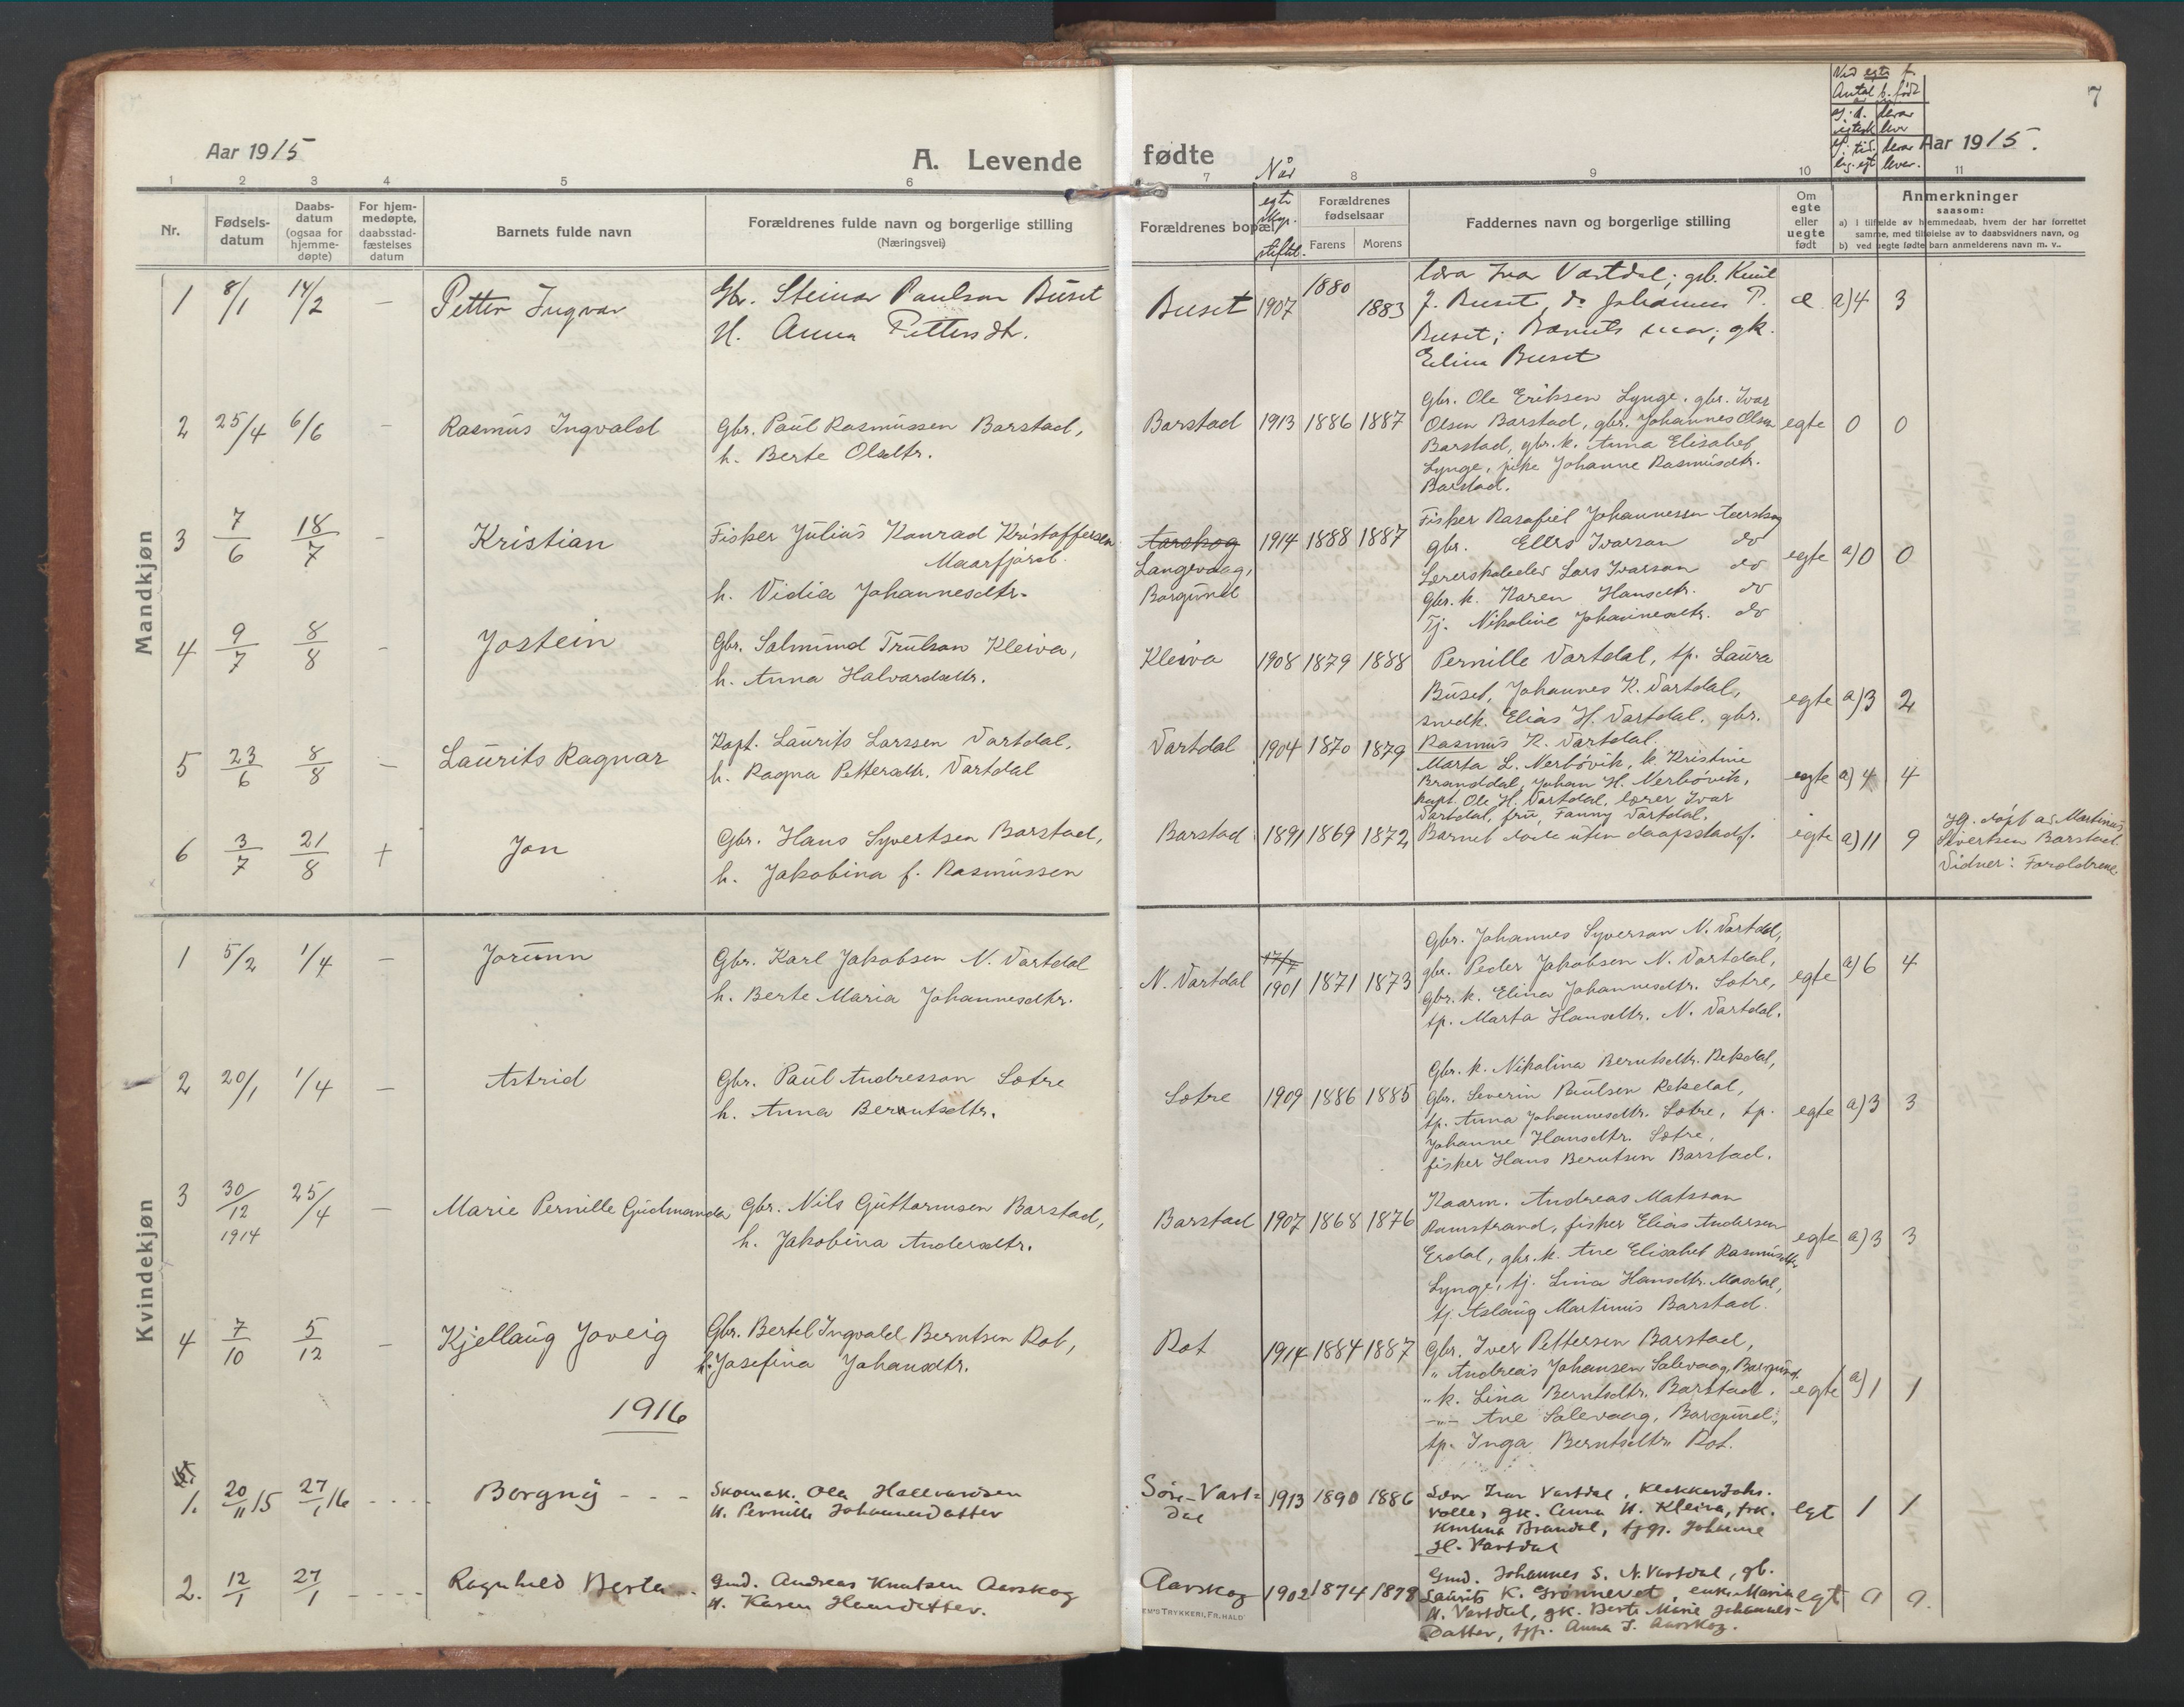 7
Aar 1915
A. Levende
fødte
Aar 1915.
Ved egte f.
Antal b. født
derav
lever.
Når
egte
skap.
stiftet.
1 2 3 4 5 6 7 8 9 10 11
Nr.
Fødsels-
datum
Daabs-
datum
(ogsaa for
hjemme-
døpte)
For hjem-
medøpte,
daabsstad-
fæstelses
datum
Barnets fulde navn
Forældrenes fulde navn og borgerlige stilling
(Næringsvei)
Forældrenes bopæl
Forældrenes
fødselsaar
Farens
Morens
Faddernes navn og borgerlige stilling
Om
egte
eller
uegte
født
Anmerkninger
saasom:
a) I tilfælde av hjemmedaab, hvem der har forrettet
samme, med tilføielse av to daabsvidners navn, og
b) ved uegte fødte barn anmelderens navn m. v..
Mandkjøn
1 8/1 14/2 - Petter Ingvar
Gbr. Steinar Paulson Buset
H. Anna Pettersdt.
Buset 1907 1880 1883
Lærer Ivar Vartdal; gb. Knut
J. Buset, do Johannes P.
Buset; Barnets mor; gk.
Elina Buset
e a) 4 3
2 25/4 6/6 - Rasmus Ingvald
Gbr. Paul Rasmussen Barstad,
h. Berte Olsdtr.
Barstad 1913 1886 1887
Gbr. Ole Eriksen Lynge, gbr. Ivar
Olsen Barstad, gbr. Johannes Olsen
Barstad, gbr. k. Anna Elisabet
Lynge, pike Johanne Rasmusdtr.
Barstad.
egte 0 0
3 7/6 18/7 - Kristian
Fisker Julius Konrad Kristoffersen
Maarfjord.
h. Vidia Johannesdtr.
Aarskog
Langevaag,
Borgund
1914 1888 1887
Fisker Rasafiel Johannessen Aarskog
Gbr. Elers Ivarson do
Lærerskoleelev Lars Ivarson do
Gbr. k. Karen Hansdtr. do
Tj. Nikoline Johannesdtr. do
egte a) 0 0
4 9/7 8/8 - Jostein
Gbr. Salmund Trulson Kleiva,
h. Anna Halvardsdtr.
Kleiva 1908 1879 1888
Pernille Vartdal, tp. Laura
Buset, Johannes K. Vartdal,
snedk. Elias H. Vartdal, gbr.
Rasmus K. Vartdal.
egte a) 3 2
5 23/6 8/8 - Laurits Ragnar
Kapt. Laurits Larssen Vartdal,
h. Ragna Pettersdtr. Vartdal
Vartdal 1904 1870 1879
Marta L. Nerbövik, k. Kristine
Branddal, Johan H. Nerbövik,
kapt. Ole H. Vartdal, lærer Ivar
Vartdal, fru Fanny Vartdal.
egte a) 4 4
6 3/7 21/8 + Jon
Gbr. Hans Syvertsen Barstad,
h. Jakobina f. Rasmussen
Barstad 1891 1869 1872
Barnet døde uten daapsstadf.
egte a) 11 9
Hj. döpt av Martinus
Sivertsen Barstad.
Vidner: Foreldrene.
Kvindekjøn
1 5/2 1/4 - Jorunn
Gbr. Karl Jakobsen N. Vartdal
h. Berte Maria Johannesdtr.
N. Vartdal 1901 1871 1873
Gbr. Johannes Syverson N. Vartdal,
gbr. Peder Jakobsen N. Vartdal,
Gbr. k. Elina Johannesdtr. Sætre,
tp. Marta Hansdtr. N. Vartdal.
egte a) 6 4
2 20/1 1/4 - Astrid
Gbr. Paul Andresson Sætre
h. Anna Berntsdtr.
Sætre 1909 1886 1885
Gbr. k. Nikolina Berntsdtr. Rekdal,
Gbr. Severin Paulsen Rekdal,
tp. Anna Johannesdtr. Sætre, tp.
Johanne Hansdtr. Sætre,
fisker Hans Berntsen Barstad.
egte a) 3 3
3 30/12 1914 25/4 - Marie Pernille Gudmanda
Gbr. Nils Guttormsen Barstad,
h. Jakobina Andersdtr.
Barstad 1907 1868 1876
Kaarm. Andreas Matsson
Ramstrand, fisker Elias Andersen
Erdal, gbr. k. Ane Elisabet Rasmusdtr
Lynge, tj. Lina Hansdtr. Masdal,
tj. Aslaug Martinus Barstad.
egte a) 3 3
4 7/10 5/12 - Kjellaug Joveig
Gbr. Bertel Ingvald Berntsen Rot,
h. Josefina Johansdtr.
Rot 1914 1884 1887
Gbr. Iver Pettersen Barstad,
" Andreas Johansen Salevaag, Borgund.
" k. Lina Berntsdtr. Barstad.
-"- Ane Salevaag, Borgund,
tp. Inga Berntsdtr. Rot.
egte a) 1 1
1916
1. 20/11 15 27/1 16 - - - - Borgny - - -
Skomak. Ola Hallvardsen
H. Pernille Johannesdatter
Søre-Vart-
dal
1913 1890 1886
Lær Ivar Vartdal, Klokker Johs.
Volle, gk. Anna H. Kleiva, frk.
Kristina Brandal, tjgp. Johanne
H. Vartdal
egt 1 1
2. 12/1 27/1 - - - - Ragnhild Berta - -
Gmd. Andreas Knutsen Aarskog
H. Karen Hansdatter.
Aarskog 1902 1874 1879
Gmd. Johannes S. N. Vartdal, gb.
Laurits K. Grönnevet, enke Marie
H. Vartdal, gk. Berte Marie Johannes-
datter, tjp. Anna J. Aarskog.
egt 9 9.
EM'S TRYKKERI, FR. HALD